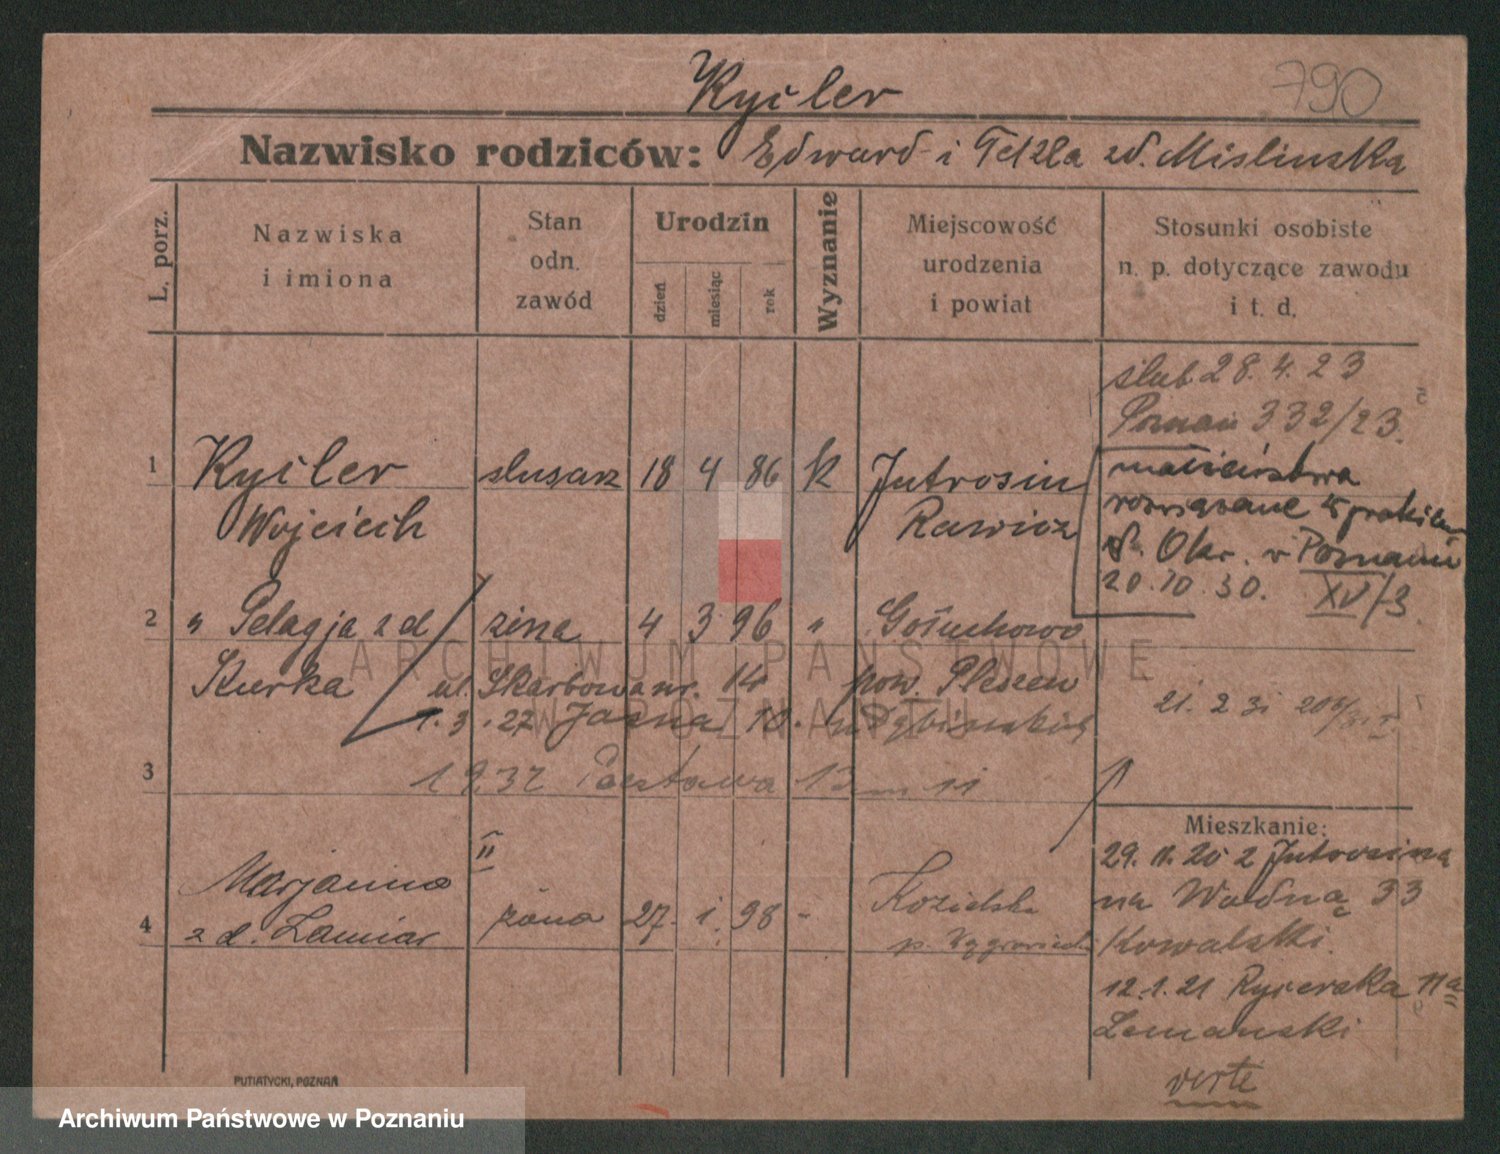 Kyiler
790
Nazwisko rodziców: Edward i Tekla zd. Mislinska
L. porz.
Nazwiska
i imiona
Stan
odn.
zawód
Urodzin
dzień
miesiąc
rok
Wyznanie
Miejscowość
urodzenia
i powiat
Stosunki osobiste
n. p. dotyczące zawodu
i t. d.
ślub 28. 4. 23
Poznań 332/23.
1 Kyiler ślusarz 18 4 86 k Jutrosin
Wojciech Rawicz
małżeństwo
rozwiązane
Okr. w Poznaniu
20. 10. 30. XV/3
2 " Pelagja z d żona 4 3 96 " Gołuchowo
Kurka ul. Skarbowa nr. 14 pow. Pleszew
1. 3. 27 Jasna 10.
21. 2 31
3 1 9.32 Pocztowa 13 m 11
ARCHIWUM PAŃSTWOWE
W POZNANIU
Mieszkanie:
29. 11. 20 z Jutrosina
na Wodną 33
Kowalski.
12. 1. 21 Rycerska 11a
Lemański
verte
II
4 Marjanna żona 27. 1. 98 - Kozielsko
z d. Lamiar p. Wągrowiec
PUTIATYCKI, POZNAŃ
Archiwum Państwowe w Poznaniu